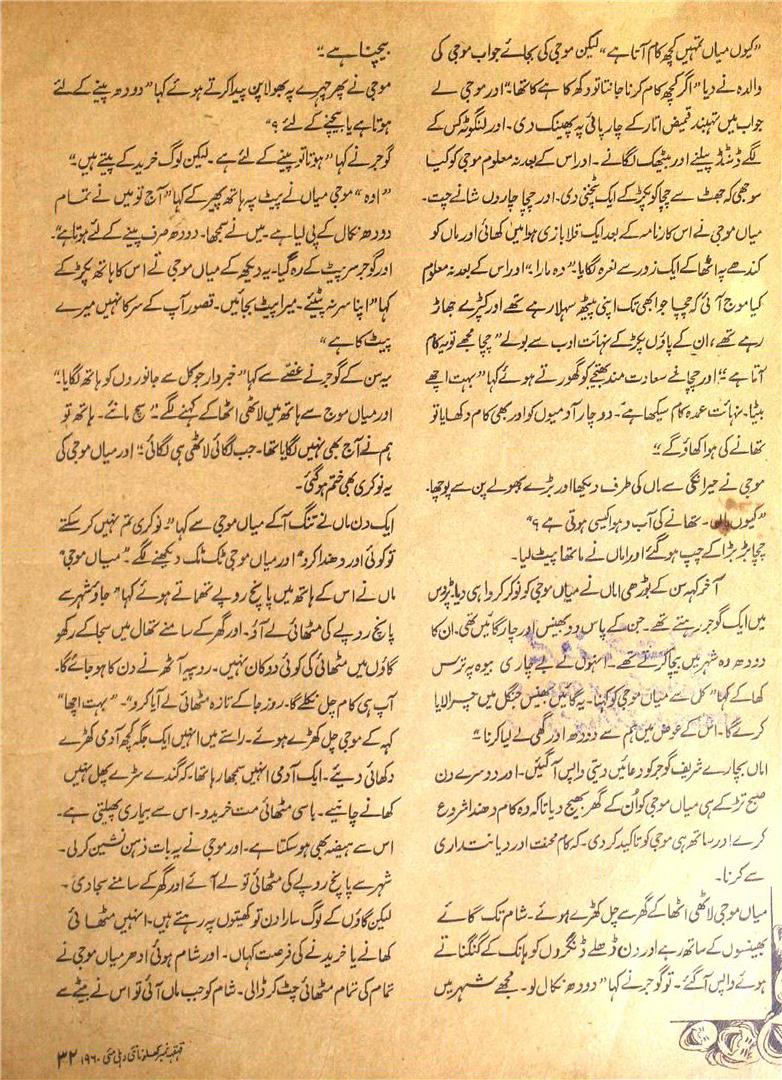 ”کیوں میاں تمہیں کچھ کام آتا ہے“ لیکن موجی کی بجائے جواب موجی کی
والدہ نے دیا ”اگر کچھ کام کرنا جانتا تو دکھ کاہے کا تھا۔“ اور موجی نے
جواب میں تہبند قمیض اتار کے چارپائی پہ پھینک دی۔ اور لنگوٹ کس کے
لگے ڈنڈ پیلنے اور بیٹھک لگانے۔ اور اس کے بعد نہ معلوم موجی کو کیا
سوجھی کہ جھٹ سے چچا کو پکڑ کے ایک پٹخنی دی۔ اور چچا چاروں شانے چت۔
میاں موجی نے اس کارنامہ کے بعد ایک قلابازی ہوا میں کھائی اور ماں کو
کندھے پہ اٹھا کے ایک زور سے نعرہ لگایا ”وہ مارا۔“ اور اس کے بعد نہ معلوم
کیا موج آئی کہ چچا جو ابھی تک اپنی پیٹھ سہلا رہے تھے اور کپڑے جھاڑ
رہے تھے، ان کے پاؤں پکڑ کے نہائت ادب سے بولے ”چچا مجھے تو یہ کام
آتا ہے“ اور چچا نے سعادت مند بھتیجے کو گھورتے ہوئے کہا ”بہت اچھے
بیٹا۔ نہائت عمدہ کام سیکھا ہے۔ دو چار آدمیوں کو اور بھی کام دکھایا تو
تھانے کی ہوا کھاؤ گے“
موجی نے حیرانگی سے ماں کی طرف دیکھا اور بڑے بھولے پن سے پوچھا۔
”کیوں ماں۔ تھانے کی آب و ہوا کیسی ہوتی ہے؟“
چچا بڑبڑا کے چپ ہو گئے اور اماں نے ماتھا پیٹ لیا۔
آخر کہہ سن کے بوڑھی اماں نے میاں موجی کو نوکر کروا ہی دیا۔ پڑوس
میں ایک گوجر رہتے تھے۔ جن کے پاس دو بھینس اور چار گائیں تھی۔ ان کا
دودھ وہ شہر میں بیچا کرتے تھے۔ انہوں نے بے چاری بیوہ پر ترس
کھا کے کہا ”کل سے میاں موجی کو کہنا۔ یہ گائیں بھینس جنگل میں چرا لایا
کرے گا۔ اس کے عوض میں ہم سے دودھ اور گھی لے لیا کرنا“
اماں بچارے شریف گوجر کو دعائیں دیتی واپس آ گئیں۔ اور دوسرے دن
صبح تڑکے ہی میاں موجی کو اُن کے گھر بھیج دیا تاکہ وہ کام دھندا شروع
کرے اور ساتھ ہی موجی کو تاکید کر دی۔ کہ کام محنت اور دیانتداری
سے کرنا۔
میاں موجی لاٹھی اٹھا کے گھر سے چل کھڑے ہوئے۔ شام تک گائے
بھینسوں کے ساتھ رہے اور دن ڈھلے ڈنگروں کو ہانک کے گنگناتے
ہوئے واپس آ گئے۔ تو گوجر نے کہا ”دودھ نکال لو۔ مجھے شہر میں
بیچنا ہے۔“
موجی نے پھر چہرے پہ بھولا پن پیدا کرتے ہوئے کہا ”دودھ پینے کے لئے
ہوتا ہے یا بیچنے کے لئے؟“
گوجر نے کہا ”ہوتا تو پینے کے لئے ہے۔ لیکن لوگ خرید کے پیتے ہیں۔“
”اوہ“ موجی میاں نے پیٹ پہ ہاتھ پھیر کے کہا ”آج تو میں نے تمام
دودھ نکال کے پی لیا ہے۔ میں نے سمجھا۔ دودھ صرف پینے کے لئے ہوتا ہے۔“
اور گوجر سر پیٹ کے رہ گیا۔ یہ دیکھ کے میاں موجی نے اس کا ہاتھ پکڑ کے
کہا ”اپنا سر نہ پیٹیے۔ میرا پیٹ بجائیں۔ قصور آپ کے سر کا نہیں میرے
پیٹ کا ہے“
یہ سن کے گوجر نے غصّے سے کہا ”خبردار جو کل سے جانوروں کو ہاتھ لگایا۔“
اور میاں موج سے ہاتھ میں لاٹھی اٹھا کے کہنے لگے۔ ”سچ مانئے۔ ہاتھ تو
ہم نے آج بھی نہیں لگایا تھا۔ جب لگائی لاٹھی ہی لگائی“ اور میاں موجی کی
یہ نوکری بھی ختم ہو گئی۔
ایک دن ماں نے تنگ آ کے میاں موجی سے کہا ”نوکری تم نہیں کر سکتے
تو کوئی اور دھندا کرو“ اور میاں موجی ٹک ٹک دیکھنے لگے۔ ”میاں موجی“
ماں نے اس کے ہاتھ میں پانچ روپے تھماتے ہوئے کہا ”جاؤ شہر سے
پانچ روپے کی مٹھائی لے آؤ۔ اور گھر کے سامنے تھال میں سجا کے رکھو
گاؤں میں مٹھائی کی کوئی دوکان نہیں۔ روپیہ آٹھ نے دن کا ہو جائے گا۔
آپ ہی کام چل نکلے گا۔ روز جا کے تازہ مٹھائی لے آیا کرو“۔ ”بہت اچھا“
کہہ کے موجی چل کھڑے ہوئے۔ راستے میں انہیں ایک جگہ کچھ آدمی کھڑے
دکھائی دیئے۔ ایک آدمی انہیں سمجھا رہا تھا۔ کہ گندے سڑے پھل نہیں
کھانے چاہئیے۔ باسی مٹھائی مت خریدو۔ اس سے بیماری پھیلتی ہے۔
اس سے ہیضہ بھی ہو سکتا ہے۔ اور موجی نے یہ بات ذہن نشین کر لی۔
شہر سے پانچ روپے کی مٹھائی تو لے آئے اور گھر کے سامنے سجا دی۔
لیکن گاؤں کے لوگ سارا دن تو کھیتوں پہ رہتے ہیں۔ انہیں مٹھائی
کھانے یا خریدنے کی فرصت کہاں۔ اور شام ہوئی ادھر میاں موجی نے
تمام کی تمام مٹھائی چٹ کر ڈالی۔ شام کو جب ماں آئی تو اس نے بیٹے سے
قہقہہ نمبر کھلونا نئی دہلی مئی ۱۹۶۰ ۳۲